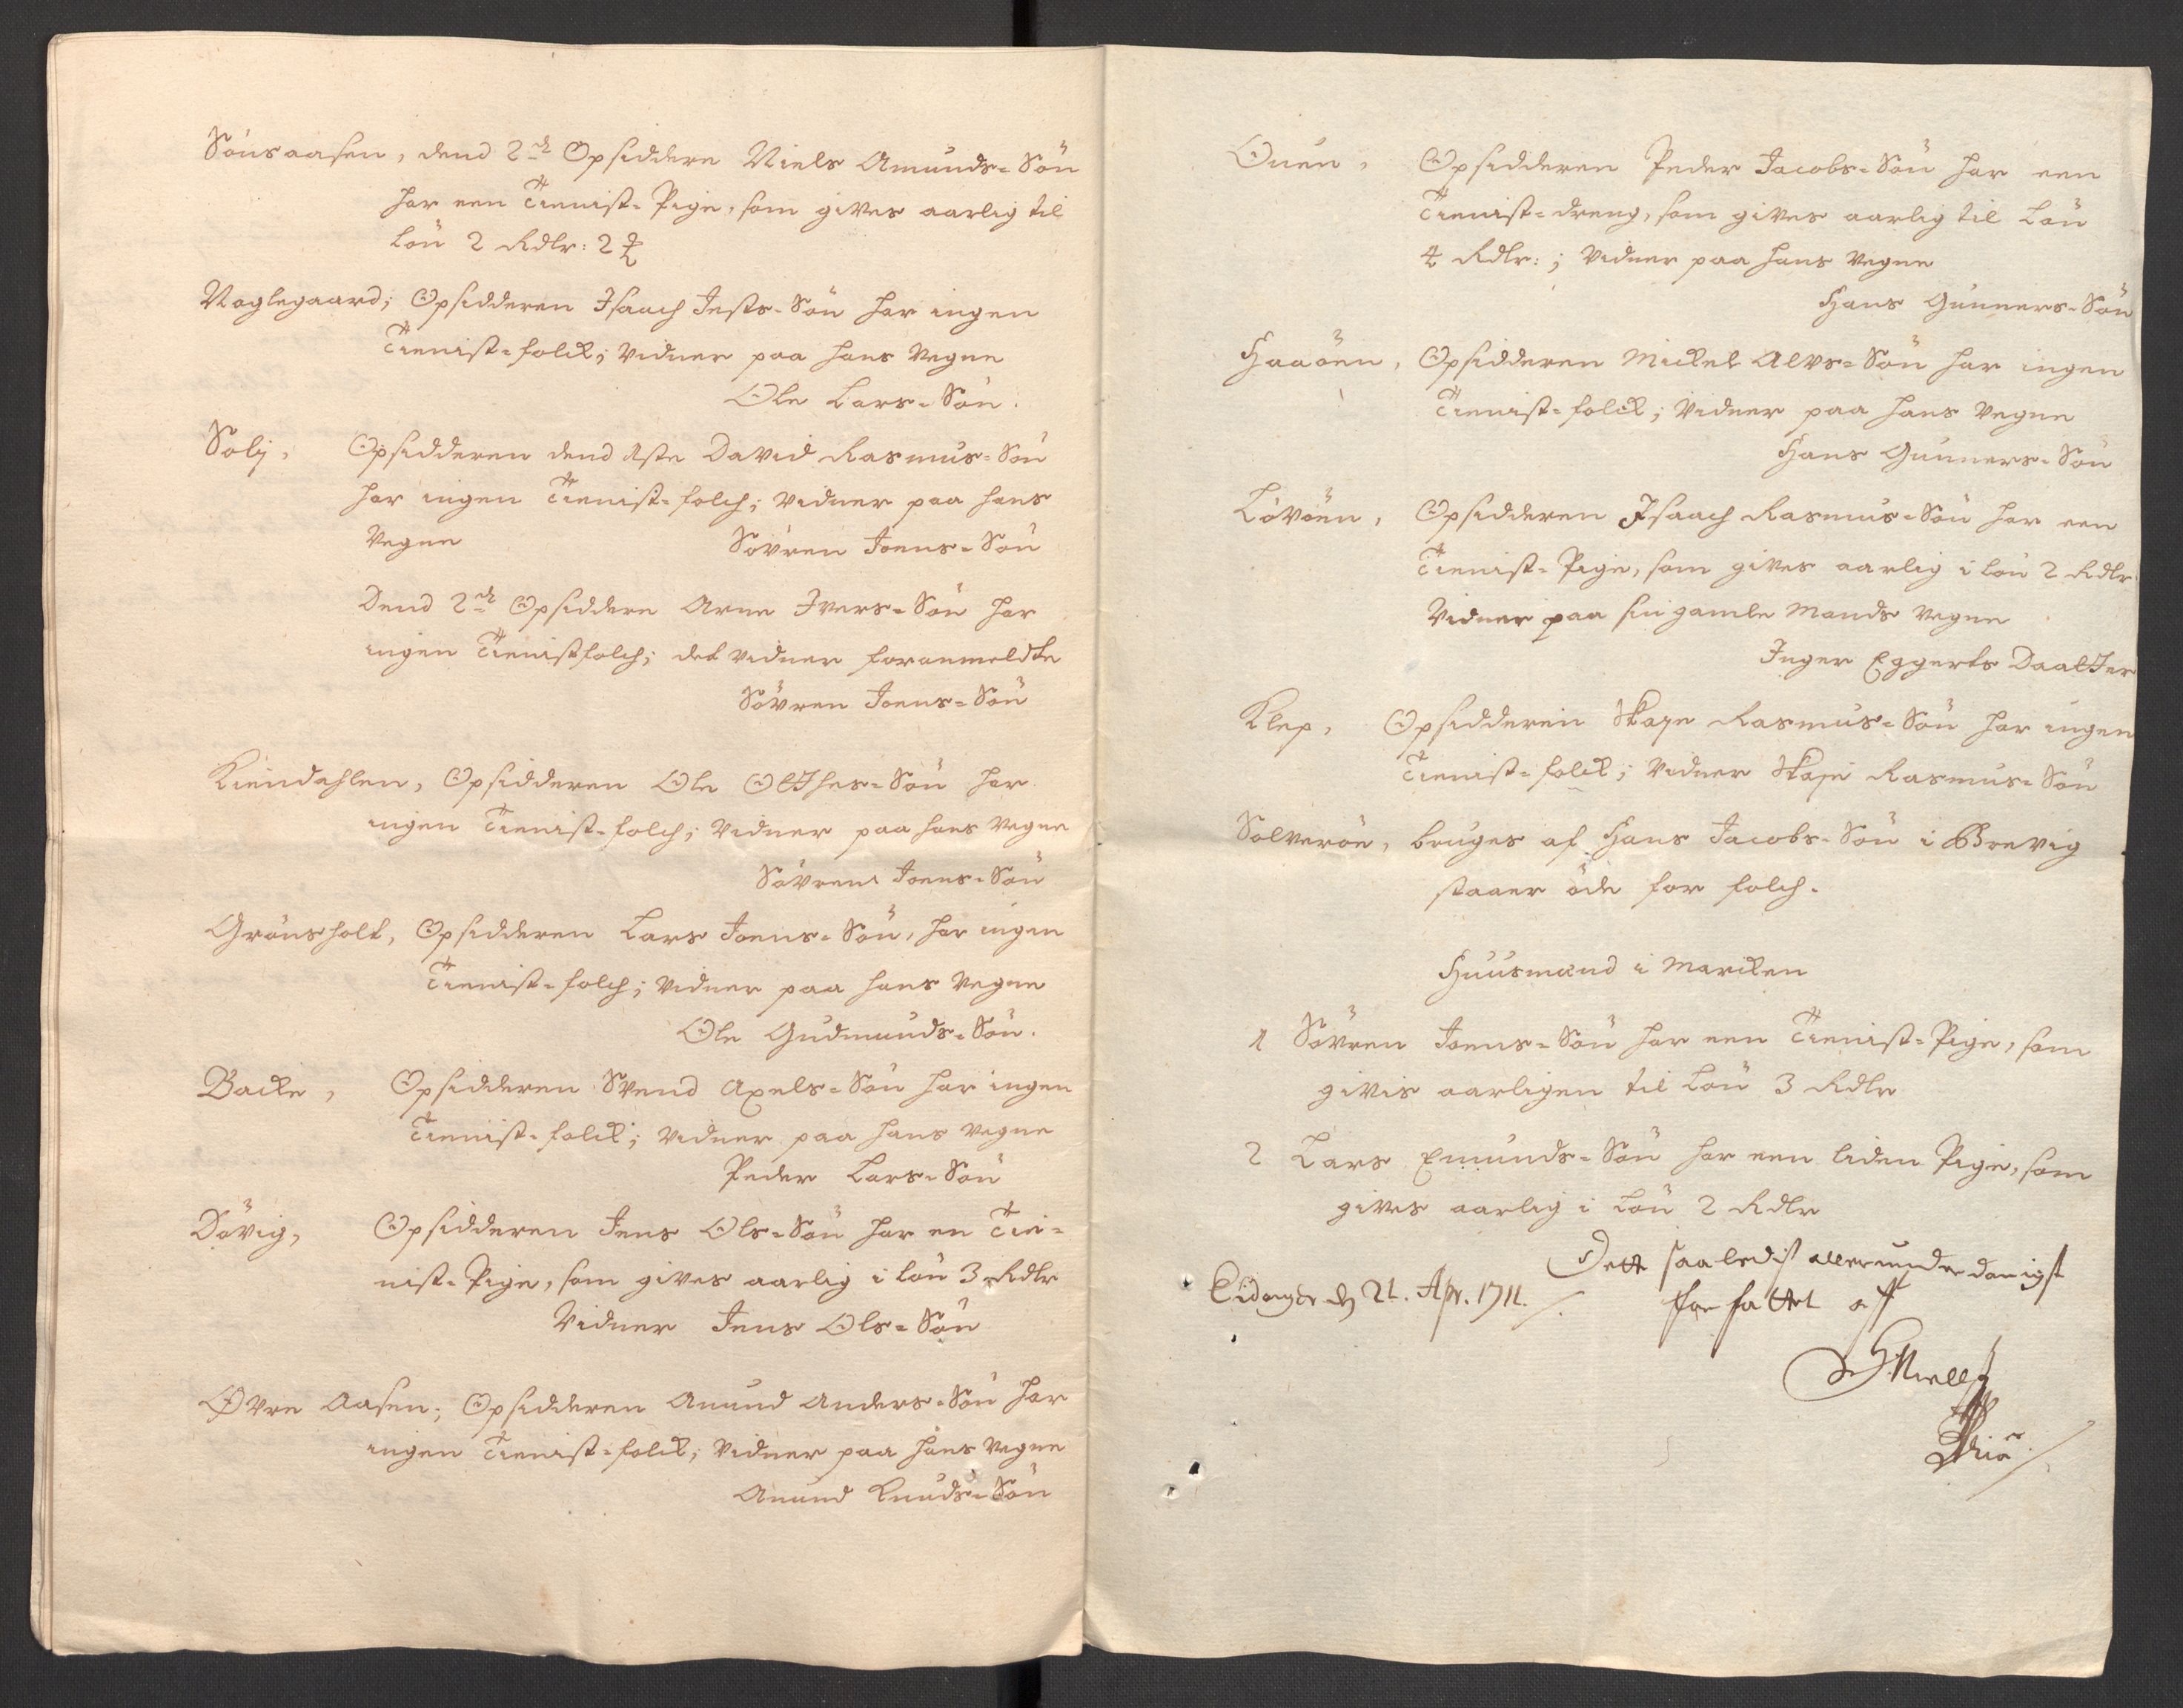 Sönsaasen, dend 2de Opsiddere Niels Amunds-Sön
har een Tienist-Pige, som gives aarlig til
Lön 2 Rdlr: 2
Noglegaard; Opsidderen Isaach Jests-Sön har ingen
Tienist-folck; vidner paa hans Vegne
Ole Lars-Sön.
Solj, Opsidderen dend 1ste David Rasmus-Sön
har ingen Tienist-folch; vidner paa hans
Vegne Sövren Joens-Sön
Dend 2de Opsiddere Arne Ivers-Sön har
ingen Tienistfolch; det vidner foranmeldte
Sövren Joens-Sön
Kiendahlen, Opsidderen Ole Olthes-Sön har
ingen Tienist-folch; vidner paa hans Vegne
Sövren Joens-Sön
Grönsholt, Opsidderen Lars Joens-Sön, har ingen
Tienist-folch; vidner paa hans Vegne
Ole Gudmunds-Sön.
Backe, Opsidderen Svend Axels-Sön har ingen
Tienist-folck; vidner paa hans Vegne
Peder Lars-Sön
Dövig, Opsidderen Jens Ols-Sön har en Tie-
nist-Pige, som gives aarlig i Lön 3 Rdlr
Vidner Jens Ols-Sön
Øvre Aasen; Opsidderen Anund Anders-Sön har
ingen Tienist-folck; vidner paa hans Vegne
Anund Knuds-Sön
Ouen, Opsidderen Peder Jacobs-Sön har een
Tienist-dreng, som gives aarlig til Lön
4 Rdlr: ; vidner paa hans Vegne
Hans Gunners-Sön
Haaöen, Opsidderen Mickel Alvs-Sön har ingen
Tienist-folck; vidner paa hans Vegne
Hans Gunners-Sön
Lövöen, Opsidderen Isaach Rasmus-Sön har een
Tienist-Pige, som gives aarlig i Lön 2 Rdlr
Vidner paa sin gamle Mands Vegne
Inger Eggerts Daatter
Klep, Opsidderen Skage Rasmus-Sön har ingen
Tienist-folck; vidner Skage Rasmus-Sön
Solveröe, bruges af Hans Jacobs-Sön i Brevig
staaer öde for folch.
Huusmænd i Marcken
1 Sövren Joens-Sön har een Tienist-Pige, som
givis aarligen til Lön 3 Rdlr
2 Lars Emunds-Sön har een liden Pige, som
gives aarlig i Lön 2 Rdlr
Dette saaledis allerunderdanigst
Eidanger d 21. Apr. 1711. forfattet aff